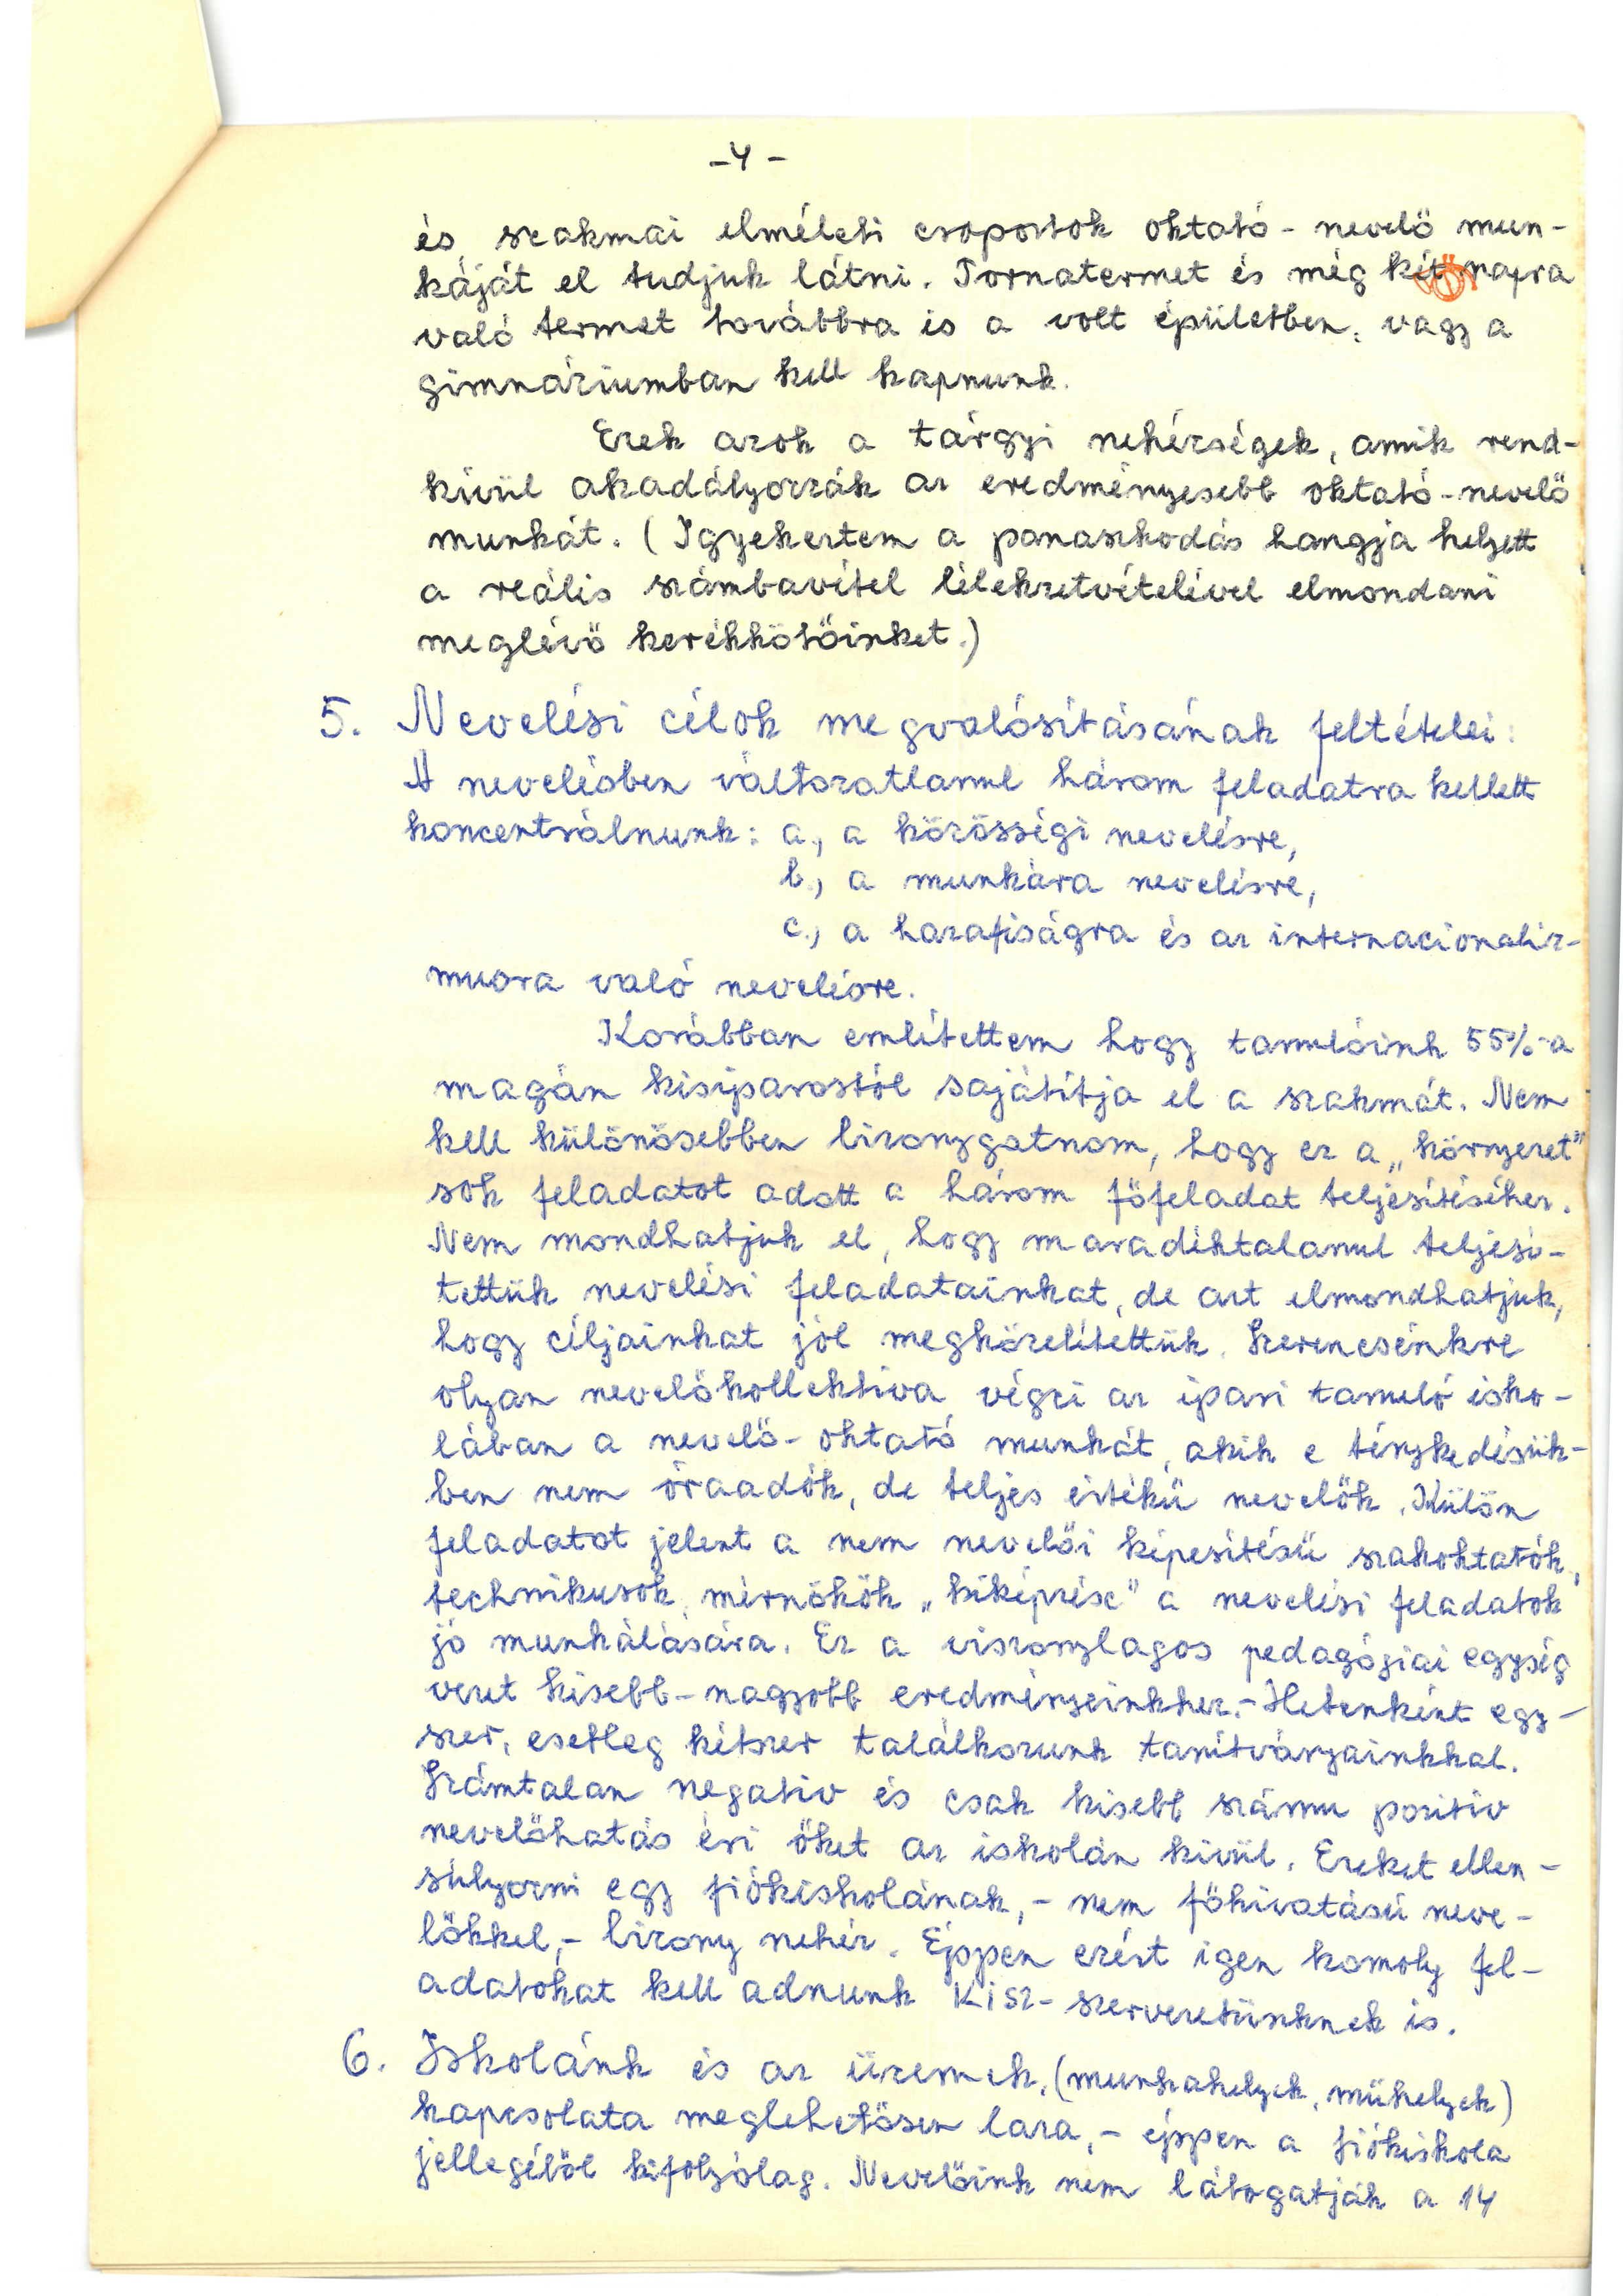 -4-
és szakmai elméleti csoportok oktató-nevelő mun-
káját el tudjuk látni. Tornatermet és még két napra
való termet továbbra is a volt épületben, vagy a
gimnáziumban kell kapnunk.
Ezek azok a tárgyi nehézségek, amik rend-
kívül akadályozzák az eredményesebb oktató-nevelő
munkát. (Igyekeztem a panaszkodás hangja helyett
a reális számbavétel lélekzetvételével elmondani
meglévő kerékkötőinket.)
5. Nevelési célok megvalósításának feltételei:
A nevelésben változatlanul három feladatra kellett
koncentrálnunk: a., a közösségi nevelésre,
b., a munkára nevelésre,
c., a hazafiságra és az internacionaliz-
musra való nevelésre.
Korábban említettem hogy tanulóink 55%-a
magán kisiparostól sajátítja el a szakmát. Nem
kell különösebben bizonygatnom, hogy ez a „környezet"
sok feladatot adott a három főfeladat teljesítéséhez.
Nem mondhatjuk el, hogy maradéktalanul teljesí-
tettük nevelési feladatainkat, de azt elmondhatjuk,
hogy céljainkat jól megközelítettük. Szerencsénkre
olyan nevelőkollektiva végzi az ipari tanuló isko-
lában a nevelő-oktató munkát, akik e ténykedésük-
ben nem óraadók, de teljes értékű nevelők. Külön
feladatot jelent a nem nevelői képesítésű szakoktatók,
technikusok, mérnökök „kiképzése" a nevelési feladatok
jó munkálására. Ez a viszonylagos pedagógiai egység
vezet kisebb-nagyobb eredményeinkhez.- Hetenként egy-
szer, esetleg kétszer találkozunk tanítványainkkal.
Számtalan negativ és csak kisebb számu pozitiv
nevelőhatás éri őket az iskolán kívül. Ezeket ellen-
súlyozni egy fiókiskolának,- nem főhivatású neve-
lőkkel,- bizony nehéz. Éppen ezért igen komoly fel-
adatokat kell adnunk KISZ-szervezetünknek is.
6. Iskolánk és az üzemek, (munkahelyek, műhelyek)
kapcsolata meglehetősen laza,- éppen a fiókiskola
jellegéből kifolyólag. Nevelőink nem látogatják a 14